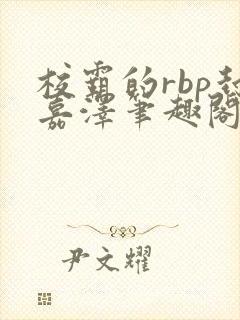 校霸的rbp起
嘉泽笔趣阁
尹文耀